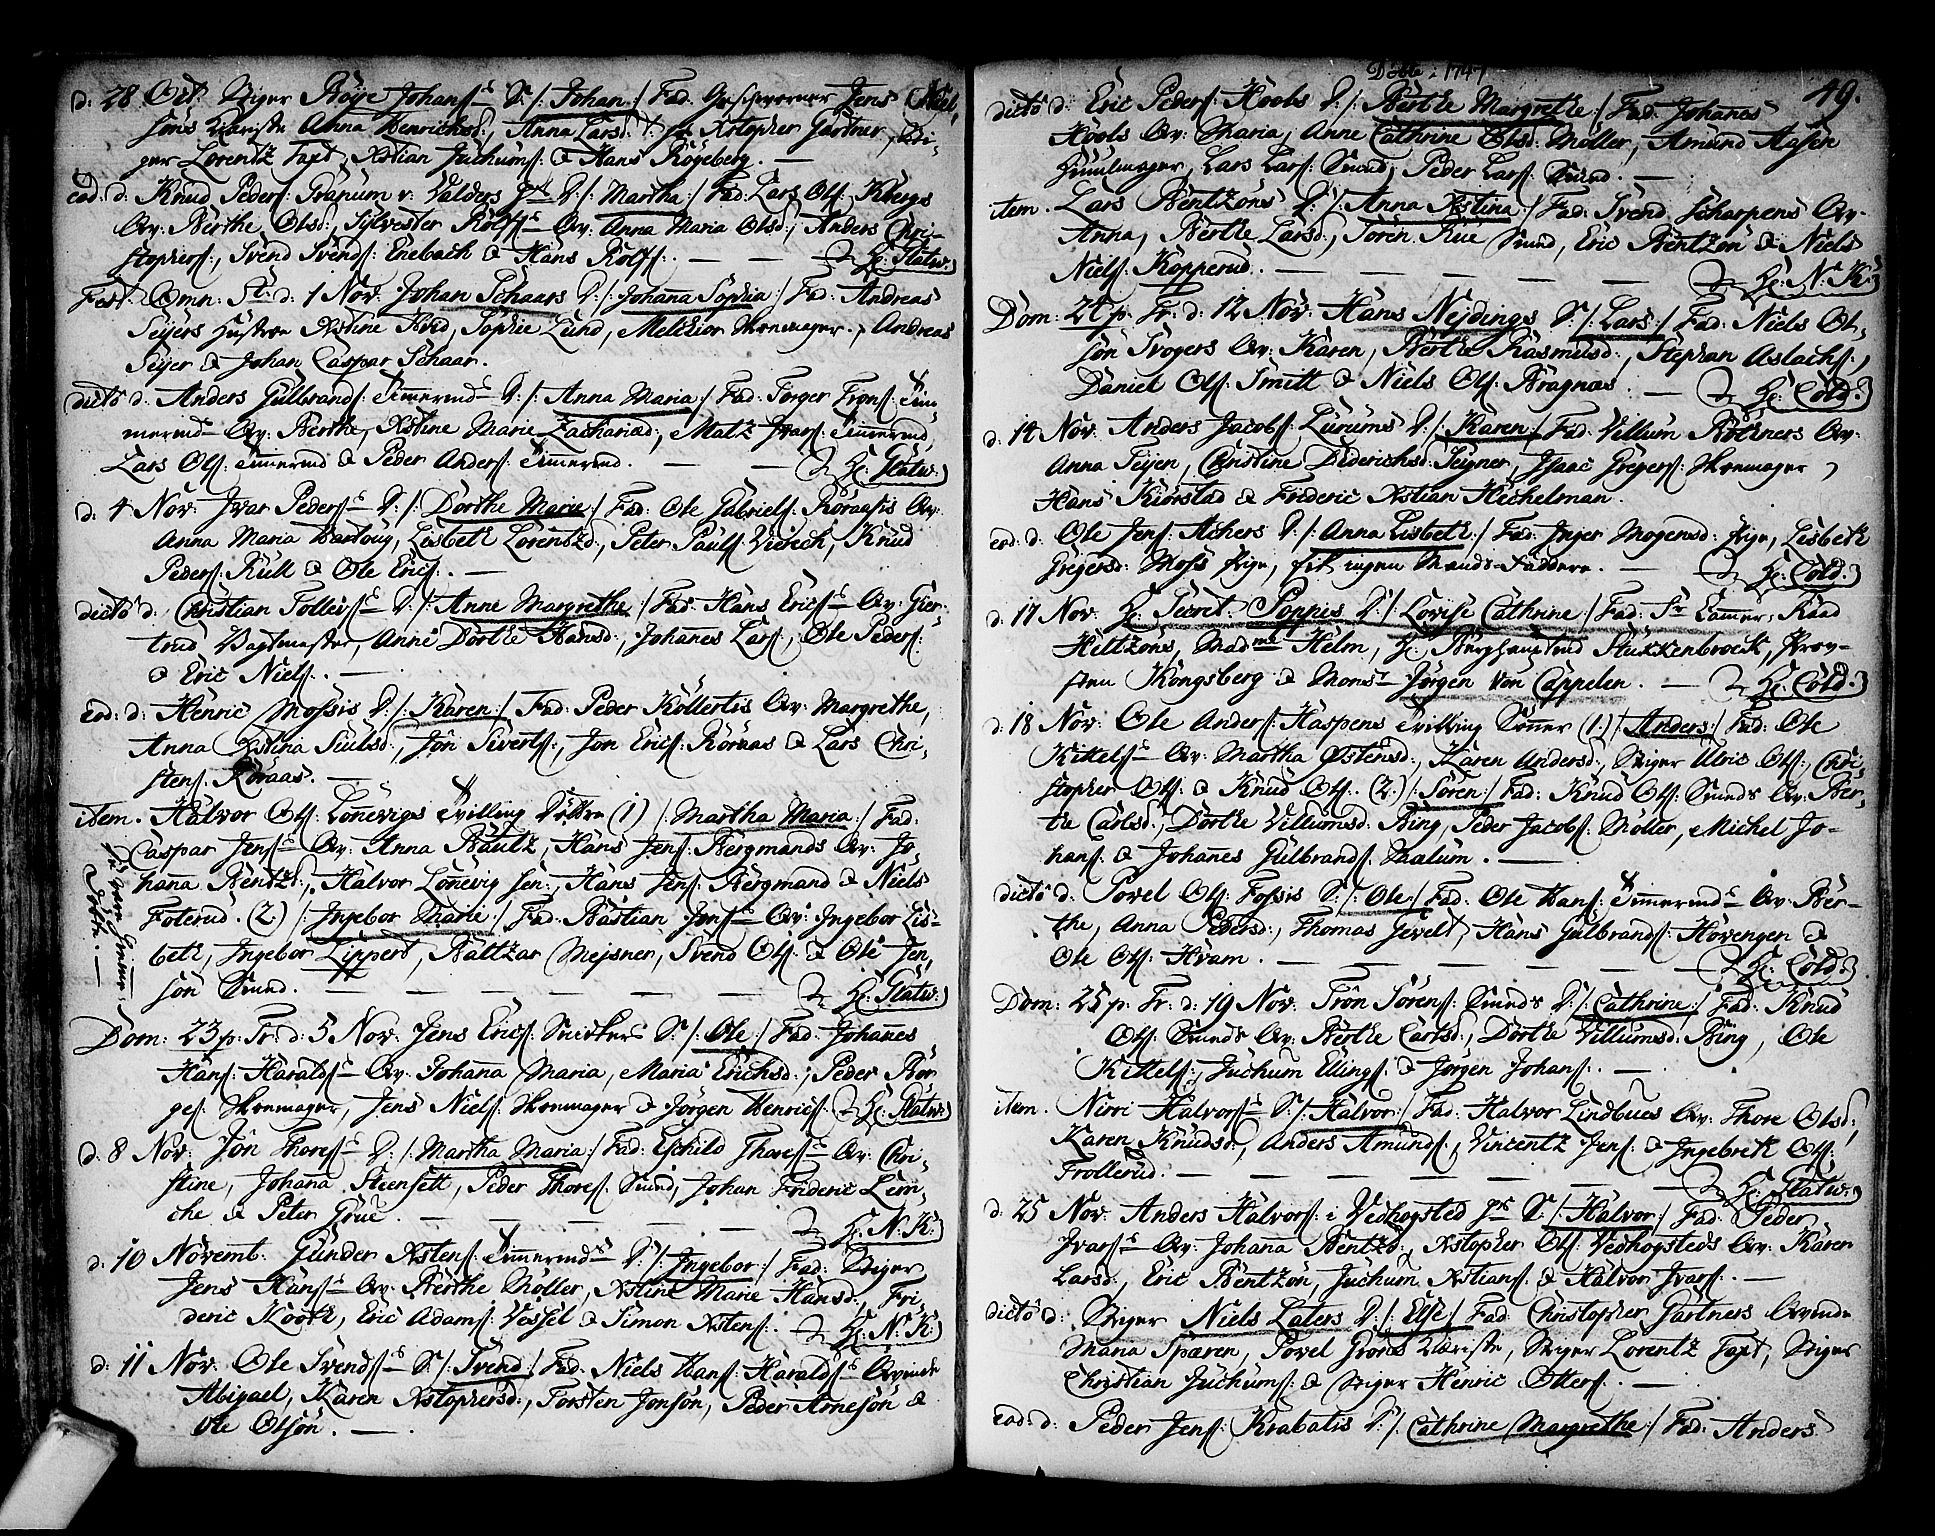 d: 28 Oct. Stiger Röye Johans: S: /: Johan :/ Fad: Geschworner Jens Niel,
söns Anna Henrichsd:, Anna Larsd: Xstopher Gartner, Sti-
ger Lorentz Faxt, Xstian Juchums: & Hans Rögeberg. —
eod. d. Knud Peders: Granum v. Valders D: /: Martha :/ Fad: Lars Ols: Kbergs
Qv: Berthe Olsd:, Sylvester Rolfs: Qv: Anna Maria Olsd:, Anders Chri-
stophers:, Svend Svends: Enebach & Hans Rolfs: — — Hr: Flatw:
Fest. Omn. St: d: 1 Nov. Johan Schaars D: /: Johana Sophia :/ Fad: Andreas
Seyers Hustroe Xstine Sophie Lund, Melchior Skoemager, Andreas
Seyer & Johan Caspar Schaar.
dicto d. Anders Gulbrands: Timermd D: /: Anna Maria :/ Fad: Torger Trons: Tim-
mermd Qv: Berthe, Xstine Marie Zachariæd:, Matz Jvars: Timmermd,
Lars Ols: Timmermd & Peder Anders: Timmermd. — — Hr: Flatw:
d: 4 Nov: Jvar Peders: D: /: Dorthe Marie :/ Fad: Ole Gabriels: Röraasis Qv:
Anna Maria Lisbeth Lorentzd:, Peter Pauls: Knud
Peders: Kull & Ole Erics: —
dicto d: Christian Tollevs: D: /: Anne Margrethe :/ Fad: Hans Erics: Qv: Gier-
trud Vagtmester, Anne Dorthe Hansd:, Johanes Lars:, Ole Peders:
& Eric Niels: —
eod: d: Henric Mossis D: /: Karen :/ Fad: Peder Kollertis Qv: Margrethe,
Anna Xstina Siulsd:, Jon Siverts:, Jon Erics: Röraas & Lars Chri-
stens: Röraas. —
item. Halvor Ols: Lonevigs Tvilling Döttre (1) /: Martha Maria :/ Fad:
Caspar Jens: Qv: Anna Bautz, Hans Jens: Bergmands Qv: Jo-
hana Bentzd:, Halvor Lonevig Sen:, Hans Jens: Bergmand & Niels
Foterud. (2) /: Ingebor Marie :/ Fad: Bastian Jons: Qv: Ingebor Lis-
beth, Ingebor Lippert, Baltzar Mejsner, Svend Ols: & Ole Jen,
sön Smed. — — — — Hr: Flatw:
Dom: 23 p. Tr: d: 5 Nov. Jens Erics: Snidkers S: /: Ole :/ Fad: Johanes
Hans: Haralds: Qv: Johana Maria, Maria Erichsd:, Peder Bör-
ges: Skoemager, Jens Niels: Skoemager & Jörgen Henrics: Hr: Flatw:
d: 8 Nov: Jon Thores: D: /: Martha Maria :/ Fad: Eschild Thores: Qv: Chri-
stine, Johana Steensett, Peder Thores: Smed, Johan Frideric Lem-
che & Peter Grüe. — — — — Hr: N: K:
d: 10 Novemb: Gunder Xstens: Timermds D: /: Ingebor :/ Fad: Stiger
Jens Hans: Qv: Berthe Möller, Xstine Marie Hansd:, Fri-
deric Koork, Eric Adams: Vessel & Simon Xstens: — Hr: N: K:
d: 11 Nov. Ole Svends: S: /: Svend :/ Fad: Niels Hans: Haralds: Qvinde
Abigael, Karen Xstophersd:, Torsten Jonsön, Peder Arnesön &
Ole Olsön. —
Döbte i 1747
49.
dicto d: Eric Peders: Kools D: /: Berthe Margrethe :/ Fad: Johanes
Kools Qv: Maria, Anne Cathrine Olsd: Möller, Amund Aasen
Hiulmager, Lars Lars: Smed, Peder Lars: Smed. —
item. Lars Bentzöns D: /: Anna Xstina :/ Fad: Svend Scharpens Qv:
Anna, Berthe Larsd:, Sören Rüe Smed, Eric Bentzön & Niels
Niels: Kopperud. — — — — Hr: N: K:
Dom: 24 p. Tr: d: 12 Nov: Hans Nejdings S: /: Lars :/ Fad: Niels Ol-
sön Svogers Qv: Karen, Berthe Rasmusd:, Stephan Aslachs:,
Daniel Ols: Smitt & Niels Ols: Bragnæs. — Hr: Cold.
d. 14 Nov: Anders Jacobs: Lurums D: /: Karen :/ Fad: Villum Böchners Qv:
Anna Teyen, Christine Diderichsd: Teigner, Jsaac Gregers: Skoemager,
Hans Kiörstad & Frideric Xstian Hechelman.
eod: d. Ole Jens: Achers D: /: Anna Lisbeth :/ Fad: Jnger Mogensd: Pige, Lisbeth
Gregersd: Moss Pige, fik ingen Mands-Faddere. — Hr: Cold.
d: 17 Nov: Hr: Secret. Poppes D: /: Lovise Cathrine :/ Fad: Fr Camer: Raad
Heltzöns, Madme Helm, Hr: Berghauptmd Stukkenbroeck, Prov-
sten Kongsberg & Monsr Jörgen von Cappelen. — Hr: Cold.
d: 18 Nov: Ole Anders: Haspens Tvilling Sönner (1.) /: Anders :/ Fad: Ole
Kittels: Qv: Martha Östensd:, Karen Andersd:, Stiger Ulric Ols:, Chri-
stopher Ols: & Knud Ols: (2.) /: Sören :/ Fad: Knud Ols: Smeds Qv: Ber-
the Carlsd:, Dorthe Villumsd: Bing, Peder Jacobs: Möller, Michel Jo-
hans: & Johanes Gulbrands: Saalum. —
dicto d: Povel Ols: Fossis S: /: Ole :/ Fad: Ole Hans: Timmermds Qv: Ber-
the, Anna Pedersd:, Thomas Gevelt, Hans Gulbrands: Hovengen &
Ole Ols: Hvam. — — — — Hr: Cold.
Dom: 25 p. Tr: d: 19 Nov: Tron Sörens: Smeds D: /: Cathrine :/ Fad: Knud
Ols: Smeds Qv: Berthe Carlsd:, Dorthe Villumsd: Bing, Ole
Kittels:, Juchum Ellings: & Jörgen Johans: —
item. Nirri Halvors: S: /: Halvor :/ Fad: Halvor Lindbues Qv: Thore Olsd:,
Karen Knudsd:, Anders Amunds:, Vincentz Jens: & Ingebreth Ols:
Trollerud. — — — — Hr: Flatw:
d: 25 Nov: Anders Halvors: i Vedhogsted S: /: Halvor :/ Fad: Peder
Jvars: Qv: Johana Bentzd:, Xstopher Ols: Vedhogsteds Qv: Karen
Larsd:, Eric Bentzön, Juchum Xstians: & Halvor Jvars: —
dicto d: Stiger Niels Laters D: /: Else :/ Fad: Christopher Gartners Qvinde
Maria Sparen, Povel Grons Stiger Lorentz Faxt, Stiger
Christian Juchums: & Stiger Henric Otters: —
eod: d: Peder Jens: Krabatis D: /: Cathrine Margrethe :/ Fad: Anders